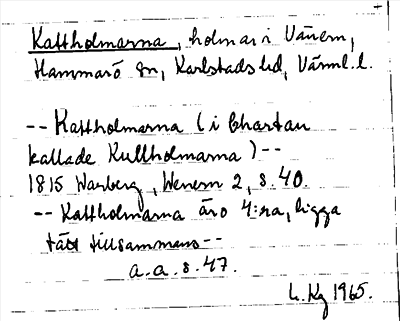 Kattholmarna, holmar i Vänern,
Hammarö sn, Karlstads hd, Värml. l.
-- Kattholmarna (i Chartan
kallade Kullholmarna) --
1815 Warberg, Wenern 2, s. 40.
-- Kattholmarna äro 4:ra, ligga
tätt tillsammans --
a.a. s. 47.
1965.